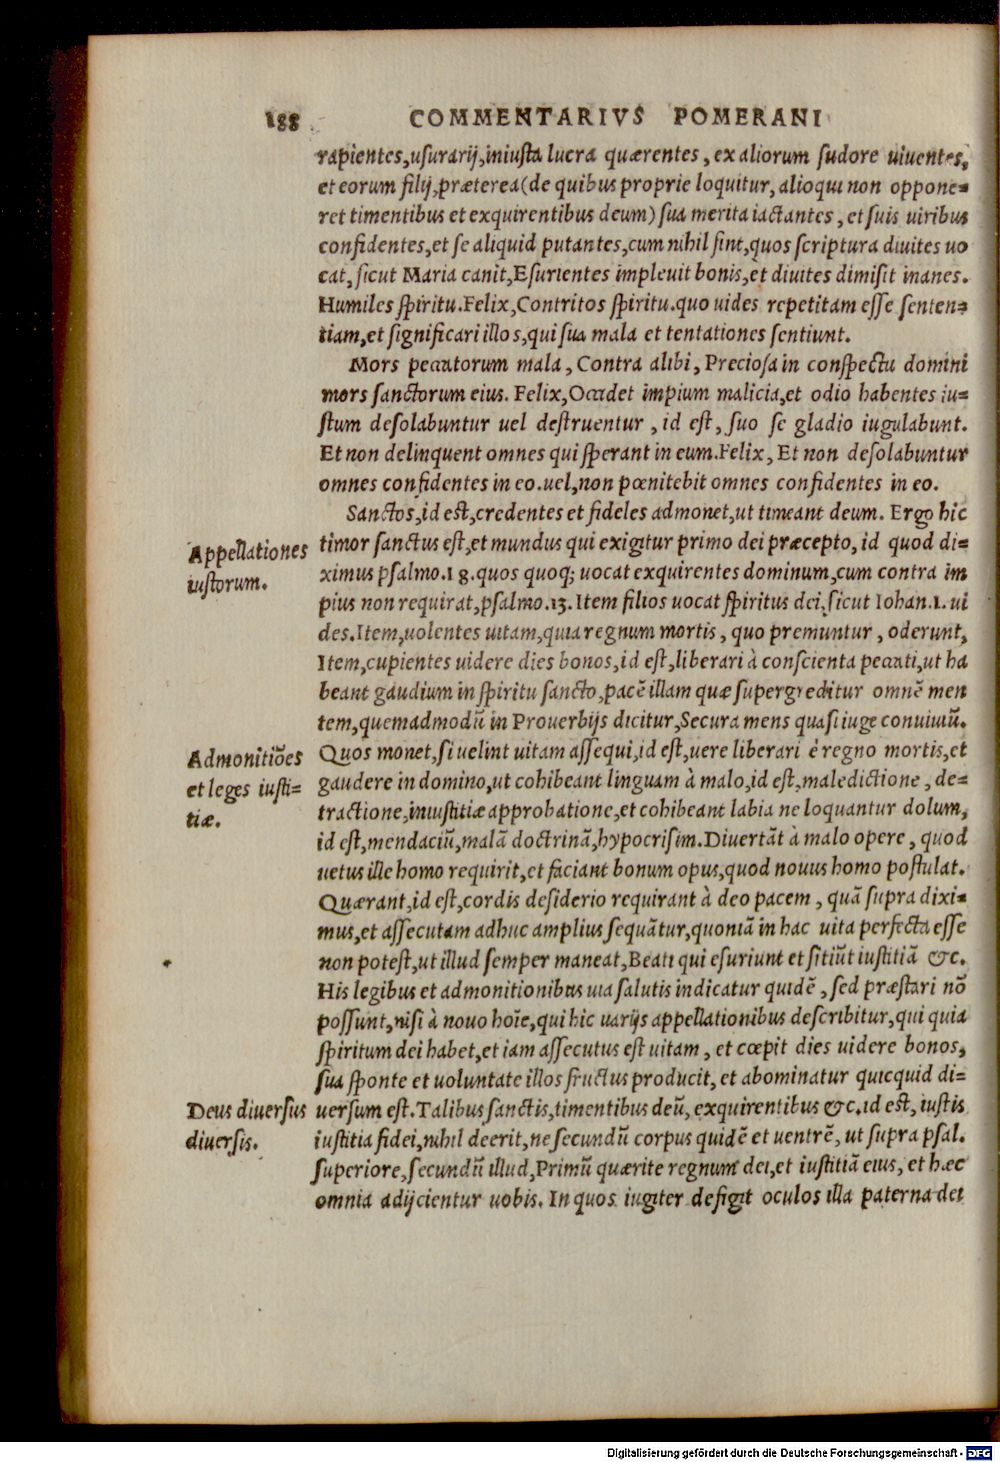 188 COMMENTARIVS POMERANI
rapientes, usurarij, iniusta lucra quærentes, ex aliorum sudore uiuentes,
et eorum filij, præterea (de quibus proprie loquitur, alioqui non oppone=
ret timentibus et exquirentibus deum) sua merita iactantes, et suis uiribus
confidentes, et se aliquid putantes, cum nihil sint, quos scriptura diuites uo
cat, sicut Maria canit, Esurientes impleuit bonis, et diuites dimisit inanes.
Humiles spiritu. Felix, Contritos spiritu. quo uides repetitam esse senten=
tiam, et significari illos, qui sua mala et tentationes sentiunt.
Mors peccatorum mala, Contra alibi, Preciosa in conspectu domini
mors sanctorum eius. Felix, Occidet impium malicia, et odio habentes iu=
stum desolabuntur uel destruentur, id est, suo se gladio iugulabunt.
Et non delinquent omnes qui sperant in eum. Felix, Et non desolabuntur
omnes confidentes in eo. uel, non pœnitebit omnes confidentes in eo.
Sanctos, id est, credentes et fideles admonet, ut timeant deum. Ergo hic
Appellationes
iustorum.
timor sanctus est, et mundus qui exigitur primo dei præcepto, id quod di=
ximus psalmo. 18. quos quoq; uocat exquirentes dominum, cum contra im
pius non requirat, psalmo. 13. Item filios uocat spiritus dei, sicut Iohan. 1. ui
des. Item, uolentes uitam, quia regnum mortis, quo premuntur, oderunt,
Item, cupientes uidere dies bonos, id est, liberari à conscienta peccati, ut ha
beant gaudium in spiritu sancto, pacē illam quæ supergreditur omnē men
tem, quemadmodū in Prouerbijs dicitur, Secura mens quasi iuge conuiuiū.
Admonitiōes
et leges iusti=
tiæ.
Quos monet, si uelint uitam assequi, id est, uere liberari è regno mortis, et
gaudere in domino, ut cohibeant linguam à malo, id est, maledictione, de=
tractione, iniustitiæ approbatione, et cohibeant labia ne loquantur dolum,
id est, mendaciū, malā doctrinā, hypocrisim. Diuertāt à malo opere, quod
uetus ille homo requirit, et faciant bonum opus, quod nouus homo postulat.
Quærant, id est, cordis desiderio requirant à deo pacem, quā supra dixi=
mus, et assecutam adhuc amplius sequātur, quoniā in hac uita perfecta esse
non potest, ut illud semper maneat, Beati qui esuriunt et sitiūt iustitiā &c.
His legibus et admonitionibus uia salutis indicatur quidē, sed præstari nō
possunt, nisi à nouo hoīe, qui hic uarijs appellationibus describitur, qui quia
spiritum dei habet, et iam assecutus est uitam, et cœpit dies uidere bonos,
sua sponte et uoluntate illos fructus producit, et abominatur quicquid di=
Deus diuersus
diuersis.
uersum est. Talibus sanctis, timentibus deū, exquirentibus &c. id est, iustis
iustitia fidei, nihil deerit, ne secundū corpus quidē et uentrē, ut supra psal.
superiore, secundū illud, Primū quærite regnum dei, et iustitiā eius, et hæc
omnia adijcientur uobis. In quos iugiter defigit oculos illa paterna dei
Digitalisierung gefördert durch die Deutsche Forschungsgemeinschaft - DFG